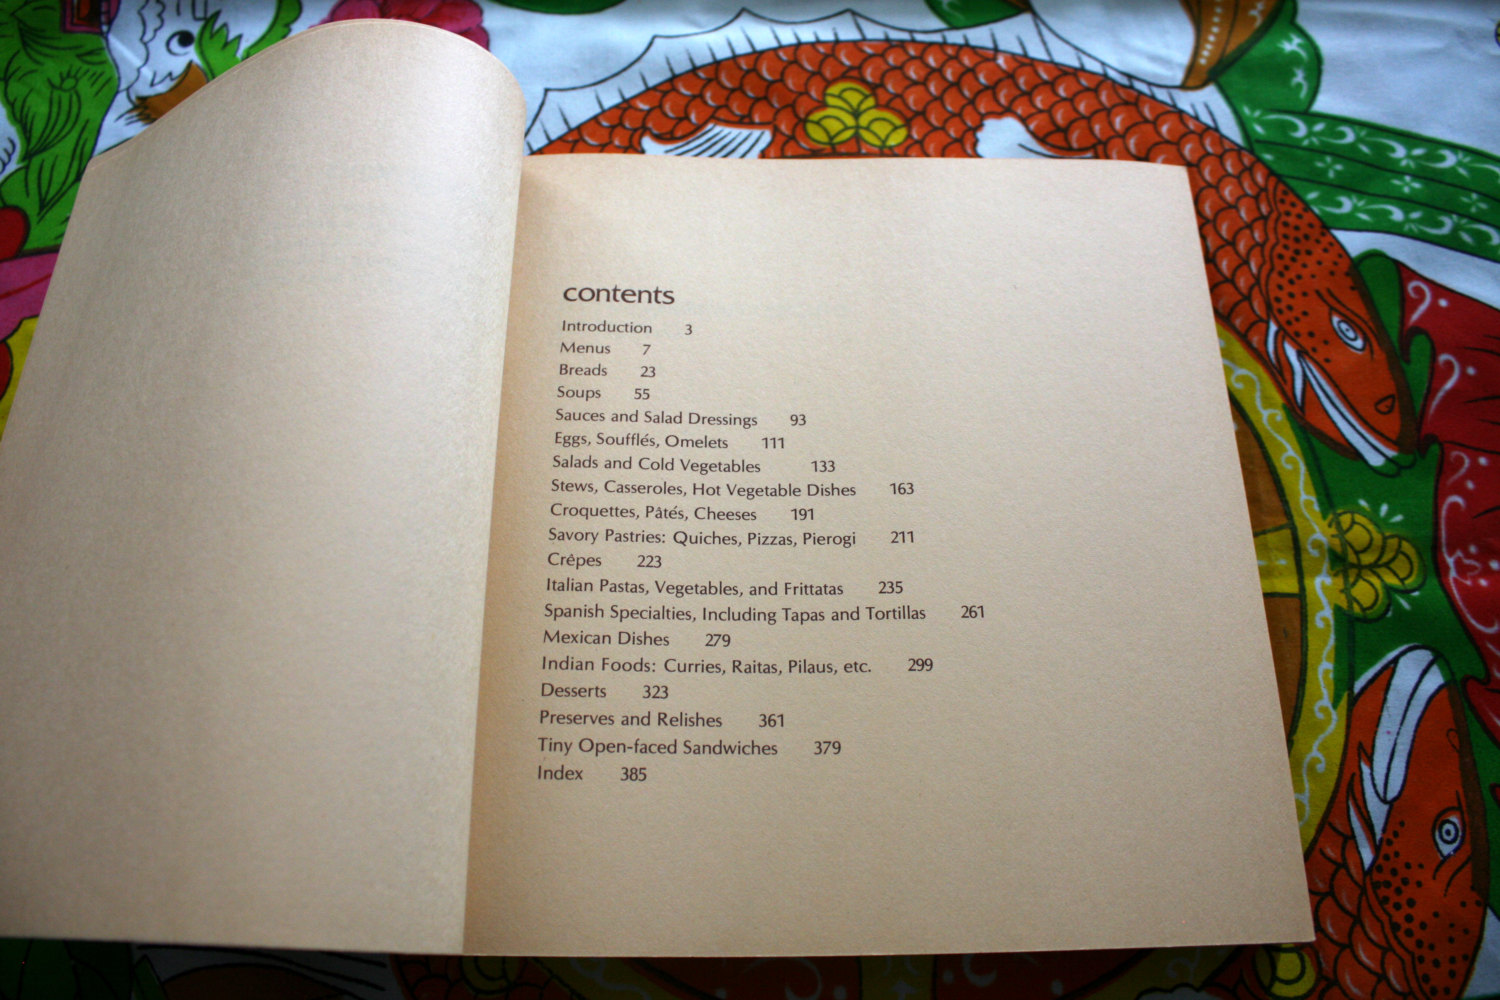 contents
Introduction 3
Menus 7
Breads 23
Soups 55
Sauces and Salad Dressings 93
Eggs, Soufflés, Omelets 111
Salads and Cold Vegetables 133
Stews, Casseroles, Hot Vegetable Dishes 163
Croquettes, Pâtés, Cheeses 191
Savory Pastries: Quiches, Pizzas, Pierogi 211
Crêpes 223
Italian Pastas, Vegetables, and Frittatas 235
Spanish Specialties, Including Tapas and Tortillas 261
Mexican Dishes 279
Indian Foods: Curries, Raitas, Pilaus, etc. 299
Desserts 323
Preserves and Relishes 361
Tiny Open-faced Sandwiches 379
Index 385